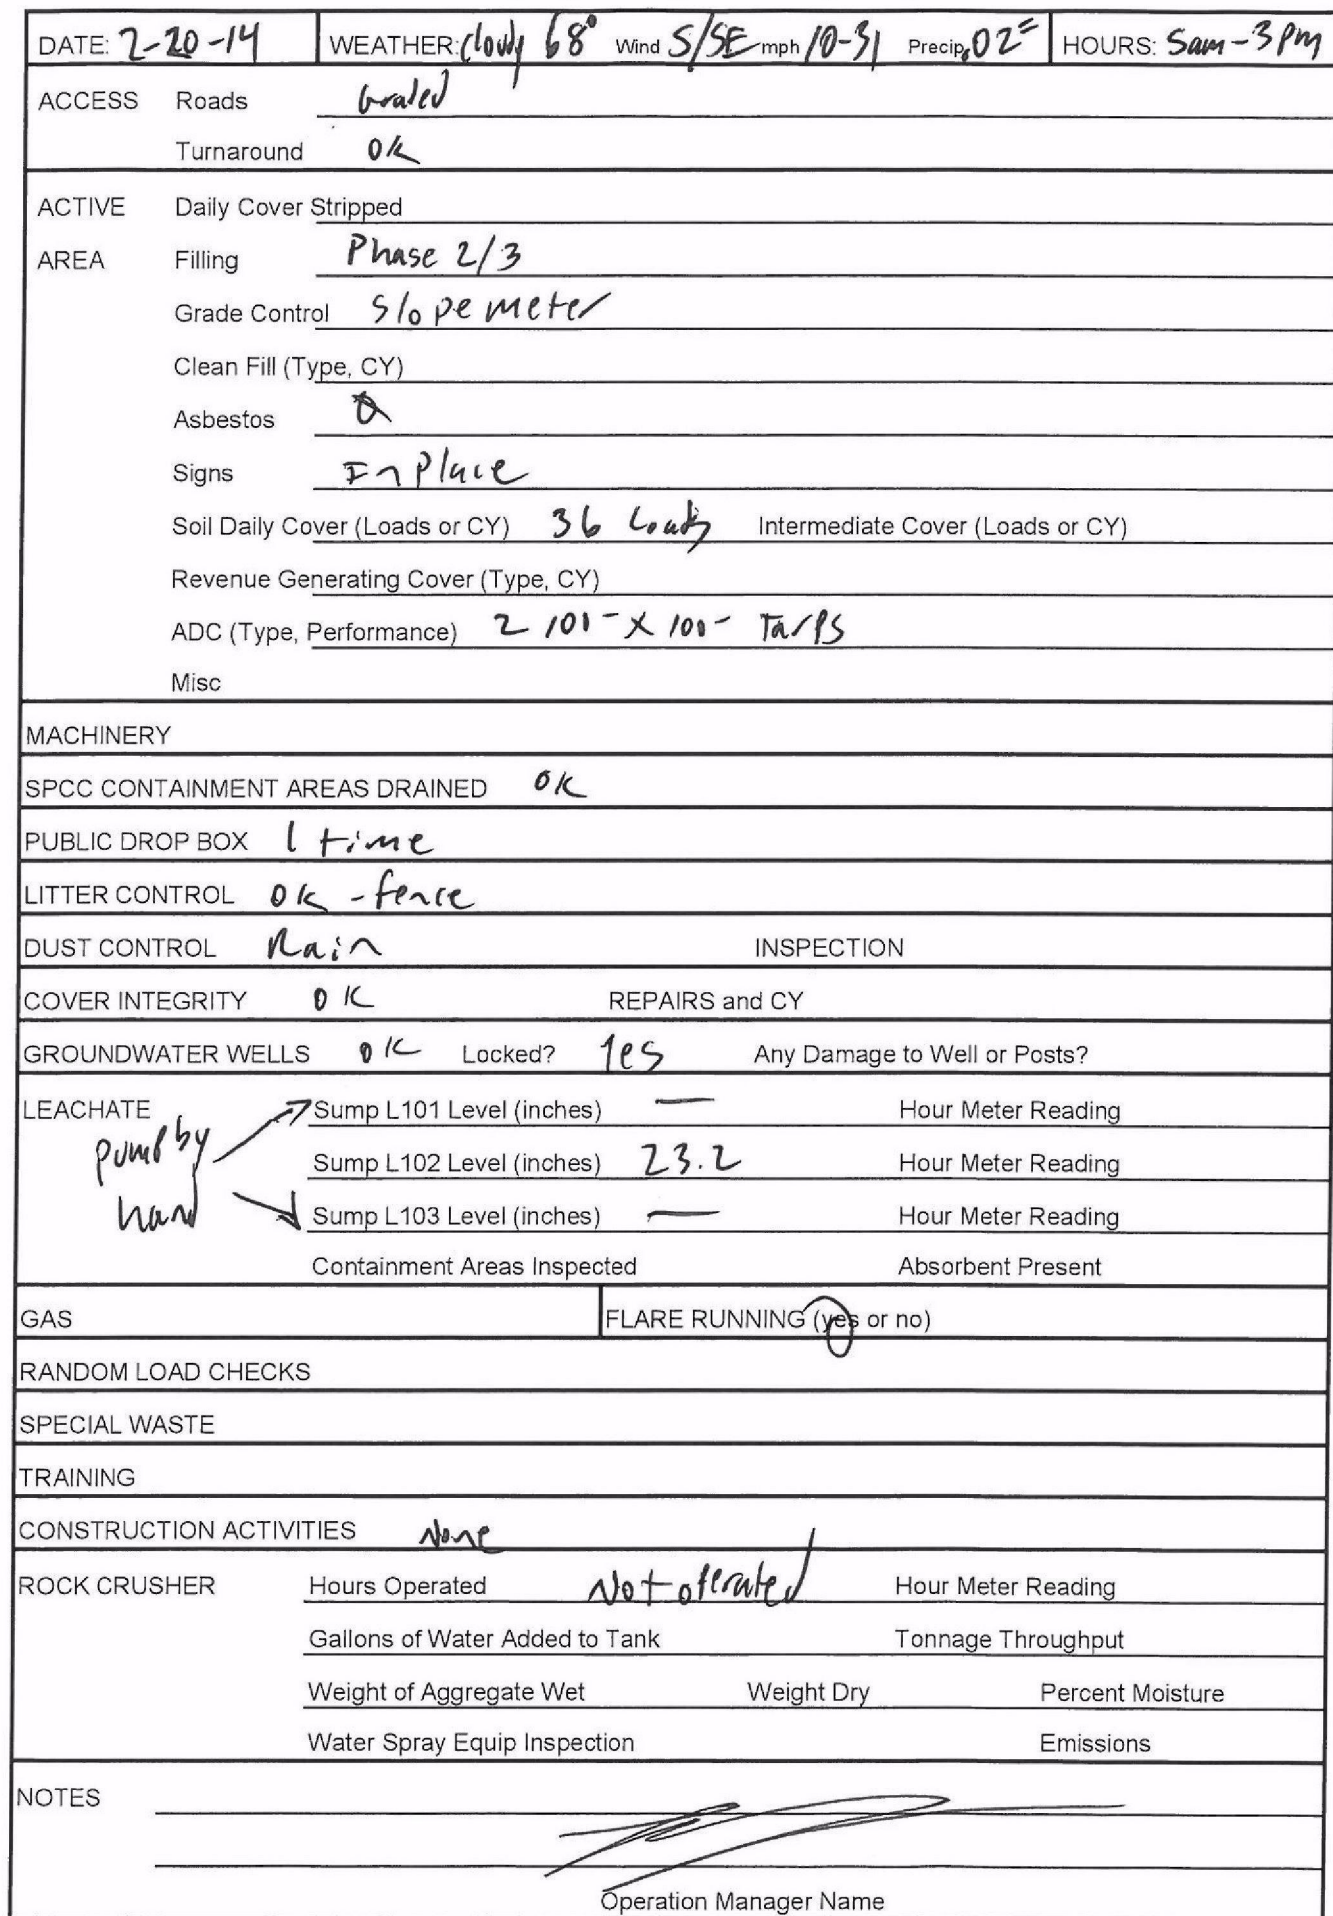 DATE: 2-20-14 WEATHER: Cloudy 68° Wind S/SE mph 10-31 Precip .02" HOURS: 5am-3pm
ACCESS Roads Graded
Turnaround OK
ACTIVE Daily Cover Stripped
AREA Filling Phase 2/3
Grade Control Slope meter
Clean Fill (Type, CY)
Asbestos
Signs In Place
Soil Daily Cover (Loads or CY) 36 Loads Intermediate Cover (Loads or CY)
Revenue Generating Cover (Type, CY)
ADC (Type, Performance) 2 100- X 100- Tarps
Misc
MACHINERY
SPCC CONTAINMENT AREAS DRAINED OK
PUBLIC DROP BOX 1 time
LITTER CONTROL OK - fence
DUST CONTROL Rain INSPECTION
COVER INTEGRITY OK REPAIRS and CY
GROUNDWATER WELLS OK Locked? Yes Any Damage to Well or Posts?
LEACHATE Sump L101 Level (inches) — Hour Meter Reading
pump by
Sump L102 Level (inches) 23.2 Hour Meter Reading
hand Sump L103 Level (inches) — Hour Meter Reading
Containment Areas Inspected Absorbent Present
GAS FLARE RUNNING (yes or no)
RANDOM LOAD CHECKS
SPECIAL WASTE
TRAINING
CONSTRUCTION ACTIVITIES None
ROCK CRUSHER Hours Operated Not operated Hour Meter Reading
Gallons of Water Added to Tank Tonnage Throughput
Weight of Aggregate Wet Weight Dry Percent Moisture
Water Spray Equip Inspection Emissions
NOTES
Operation Manager Name